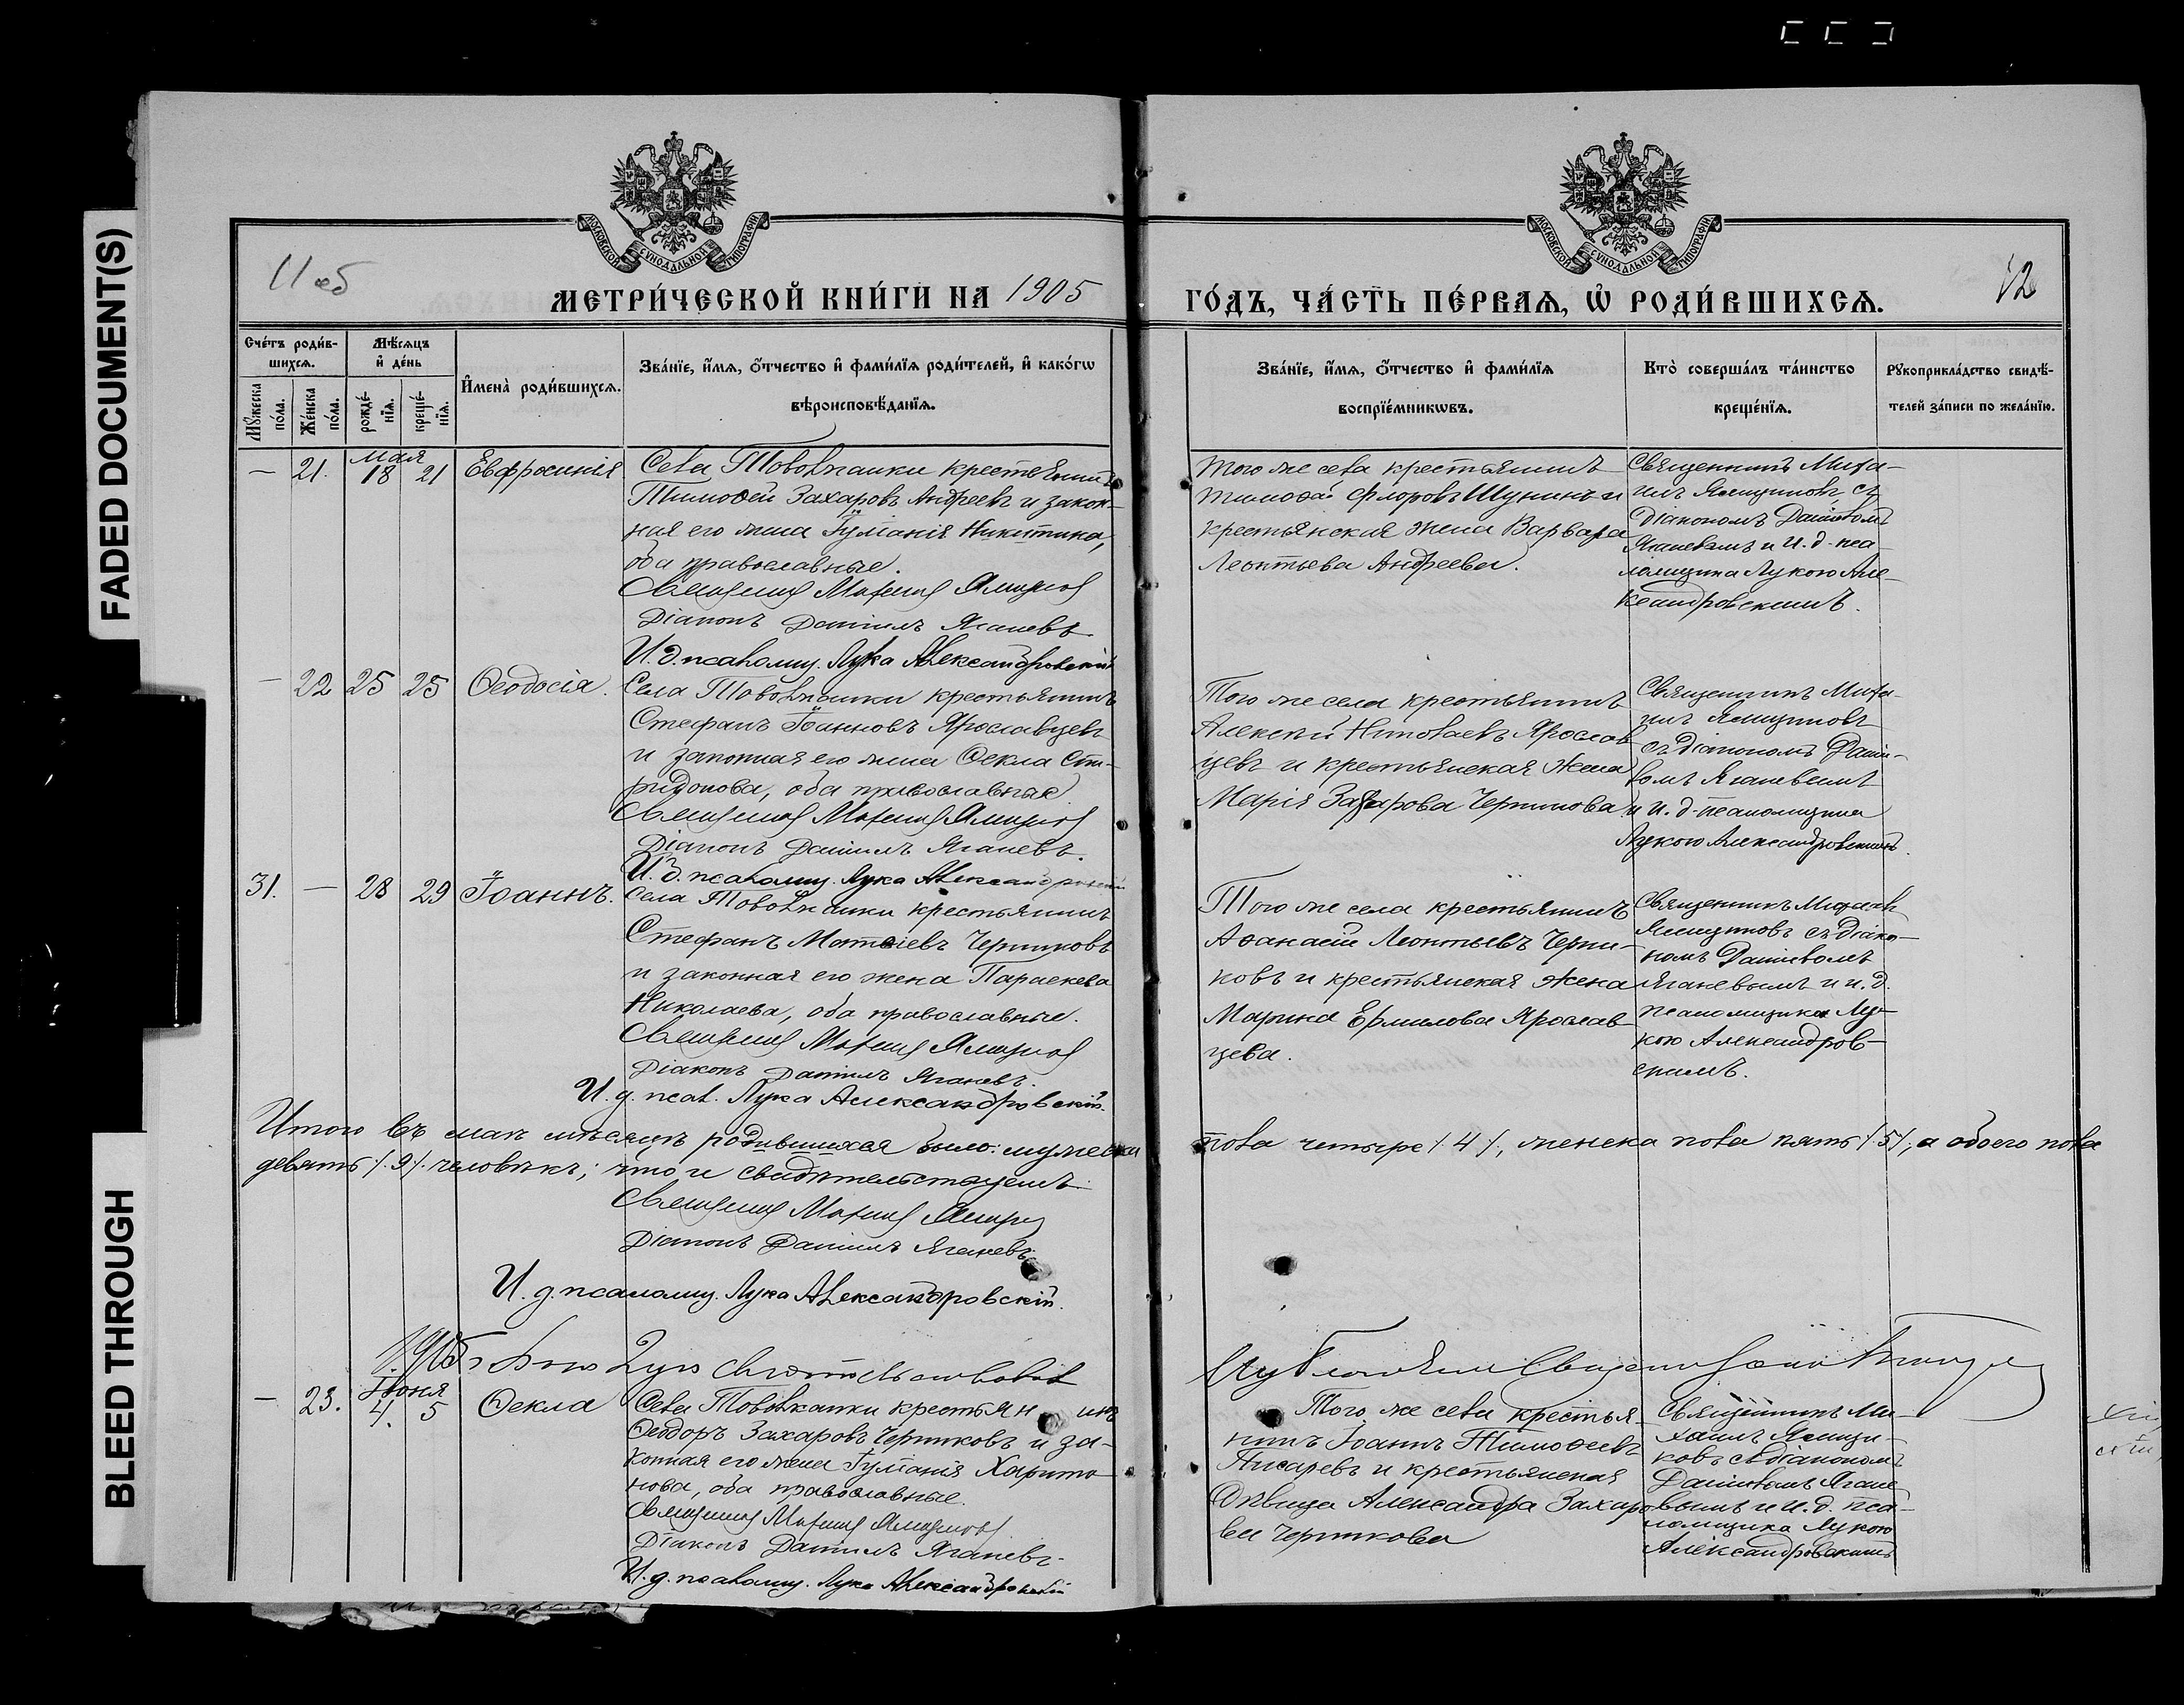 FADED DOCUMENT(S)
BLEED THROUGH
11 об
12
МОСКОВСКОЙ СѴНОДАЛЬНОЙ ТИПОГРАФІИ
МОСКОВСКОЙ СѴНОДАЛЬНОЙ ТИПОГРАФІИ
МЕТРИ́ЧЕСКОЙ КНИ́ГИ НА 1905
ГО́ДЪ, ЧА́СТЬ ПЕ́РВАѦ, Ѽ РОДИ́ВШИХСѦ.
Сче́тъ роди́в-
шихсѧ.
Мѹжеска
по́ла.
Же́нска
по́ла.
Мѣ́сѧцъ
и҆ де́нь
рожде́-
нїѧ.
креще́-
нїѧ.
И҆мена̀ роди́вшихсѧ.
Зва́нїе, и҆́мѧ, ѻ҆́тчество и҆ фами́лїѧ роди́телей, и҆ како́гѡ
вѣроисповѣ́данїѧ.
Зва́нїе, и҆́мѧ, ѻ҆́тчество и҆ фами́лїѧ
воспрїе́мникѡвъ.
Кто̀ соверша́лъ та́инство
креще́нїѧ.
Рѹкоприкла́дство свидѣ́-
телей за́писи по жела́нїю.
— 21. Мая 18 21 Евфросинія
Села Товолжанки крестьянинъ
Тимоѳей Захаровъ Андреевъ и закон-
ная его жена Гуманія Никитина,
оба православные.
Священникъ Михаилъ
Діаконъ Даніилъ Яганевъ
И. д. псаломщ. Лука Александровскій
того же села крестьянинъ
Тимоѳей Флоровъ Шунинъ и
крестьянская жена Варвара
Леонтьева Андреева.
Священникъ Миха-
илъ съ
діакономъ Даніиломъ
Яганевымъ и И. д. пса-
ломщика Лукою Але-
ксандровскимъ.
— 22 25 25 Ѳеодосія.
Села Товолжанки крестьянинъ
Стефанъ Іоанновъ Ярославцевъ
и законная его жена Ѳекла Спи-
ридонова, оба православные
Священникъ Михаилъ
Діаконъ Даніилъ Яганевъ.
И. д. псаломщ. Лука Александровскій
Того же села крестьянинъ
Алексѣй Николаевъ Ярослав-
цевъ и крестьянская жена
Марія Захарова Черникова.
Священникъ Миха-
илъ
съ діакономъ Даніи-
ломъ Яганевымъ
и И. д. псаломщика
Лукою Александровскимъ.
31. — 28 29 Іоаннъ.
Села Товолжанки крестьянинъ
Стефанъ Матѳіевъ Черниковъ
и законная его жена Параскева
Николаева, оба православные.
Священникъ Михаилъ
Діаконъ Даніилъ Яганевъ.
И. д. псал. Лука Александровскій.
Того же села крестьянинъ
Аѳанасій Леонтьевъ Черни-
ковъ и крестьянская жена
Марина Ермилова Ярослав-
цева.
Священникъ Михаилъ
съ діако-
номъ Даніиломъ
Яганевымъ и и. д.
псаломщика Лу-
кою Александров-
скимъ.
Итого въ маѣ мѣсяцѣ родившихся было: мужеска пола четыре /4/, женска пола пять /5/, а обоего пола
девять /9/ человѣкъ; что и свидѣтельствуемъ
Священникъ Михаилъ
Діаконъ Даніилъ Яганевъ.
И. д. псаломщ. Лука Александровскій.
1905
— 23. Іюня 4. 5 Ѳекла
Села Товолжанки крестьянинъ
Ѳеодоръ Захаровъ Черниковъ и за-
конная его жена Гуманія Харито-
нова, оба православные.
Священникъ Михаилъ
Діаконъ Даніилъ Яганевъ.
И. д. псаломщ. Лука Александровскій
Того же села крестья-
нинъ Іоаннъ Тимоѳеевъ
Писаревъ и крестьянская
дѣвица Александра Захаро-
ва Черникова
Священникъ Ми-
хаилъ
съ діакономъ
Даніиломъ Ягане-
вымъ и И. д. пса-
ломщика Лукою
Александровскимъ